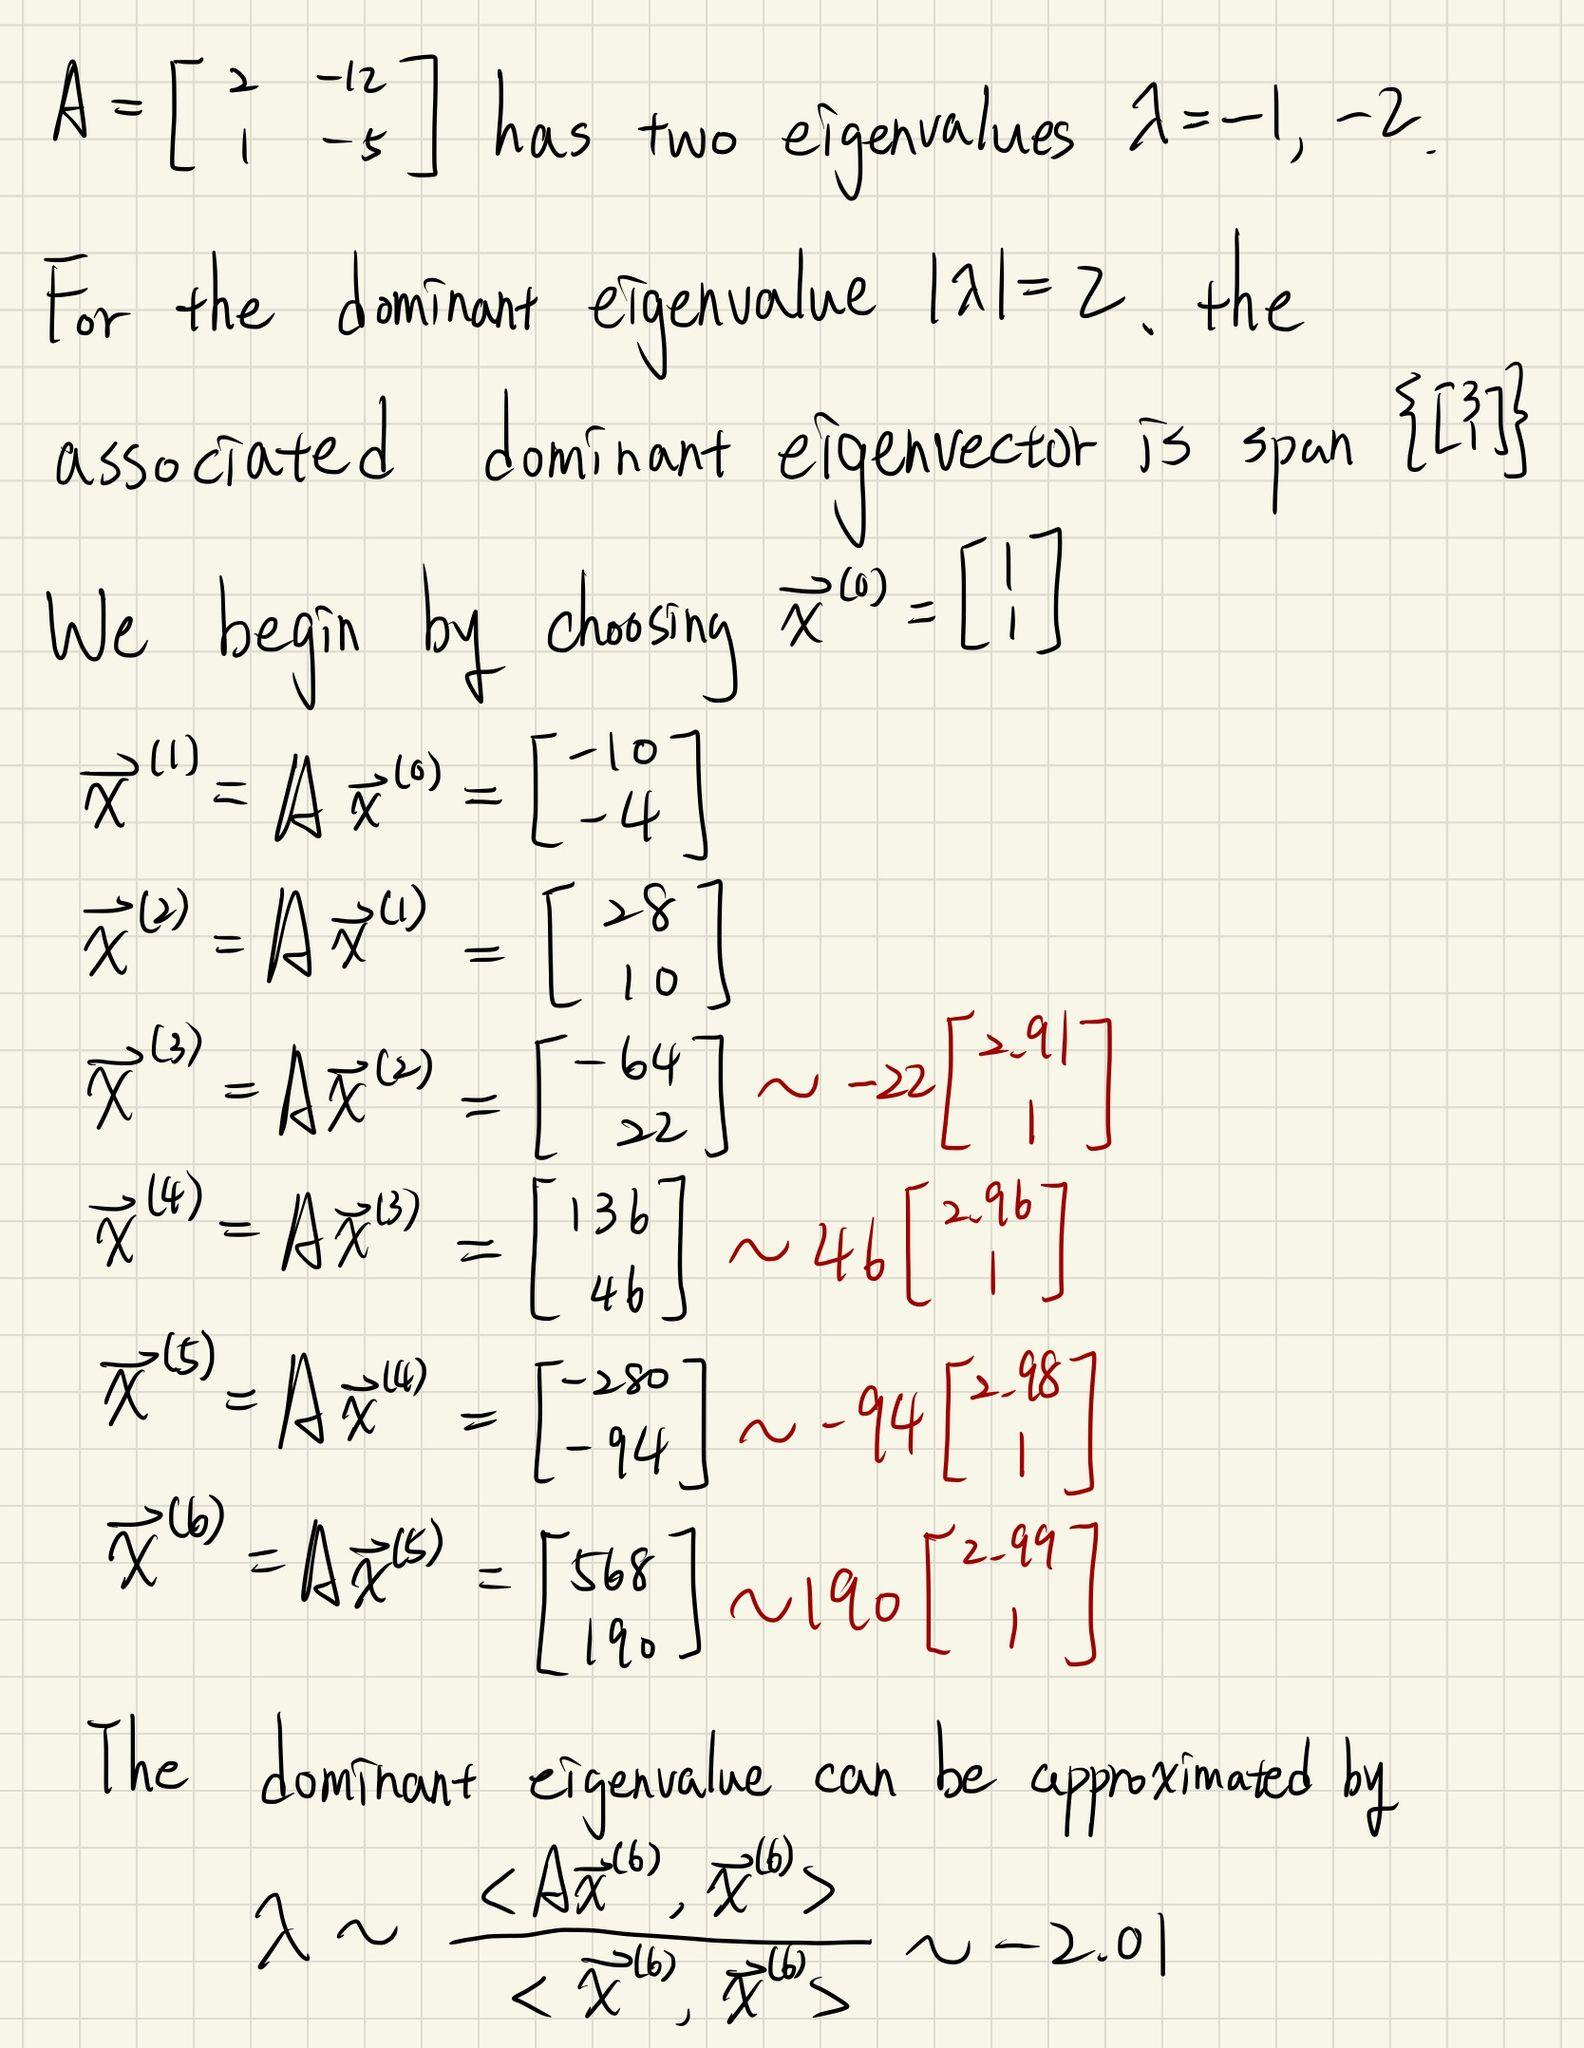 A = [ 2 -12 ; 1 -5 ] has two eigenvalues λ = -1, -2.
For the dominant eigenvalue |λ| = 2, the
associated dominant eigenvector is span {[3 ; 1]}
We begin by choosing x⃗^(0) = [ 1 ; 1 ]
x⃗^(1) = A x⃗^(0) = [ -10 ; -4 ]
x⃗^(2) = A x⃗^(1) = [ 28 ; 10 ]
x⃗^(3) = A x⃗^(2) = [ -64 ; 22 ] ~ -22 [ 2.91 ; 1 ]
x⃗^(4) = A x⃗^(3) = [ 136 ; 46 ] ~ 46 [ 2.96 ; 1 ]
x⃗^(5) = A x⃗^(4) = [ -280 ; -94 ] ~ -94 [ 2.98 ; 1 ]
x⃗^(6) = A x⃗^(5) = [ 568 ; 190 ] ~ 190 [ 2.99 ; 1 ]
The dominant eigenvalue can be approximated by
λ ~ <A x⃗^(6), x⃗^(6)> / <x⃗^(6), x⃗^(6)> ~ -2.01